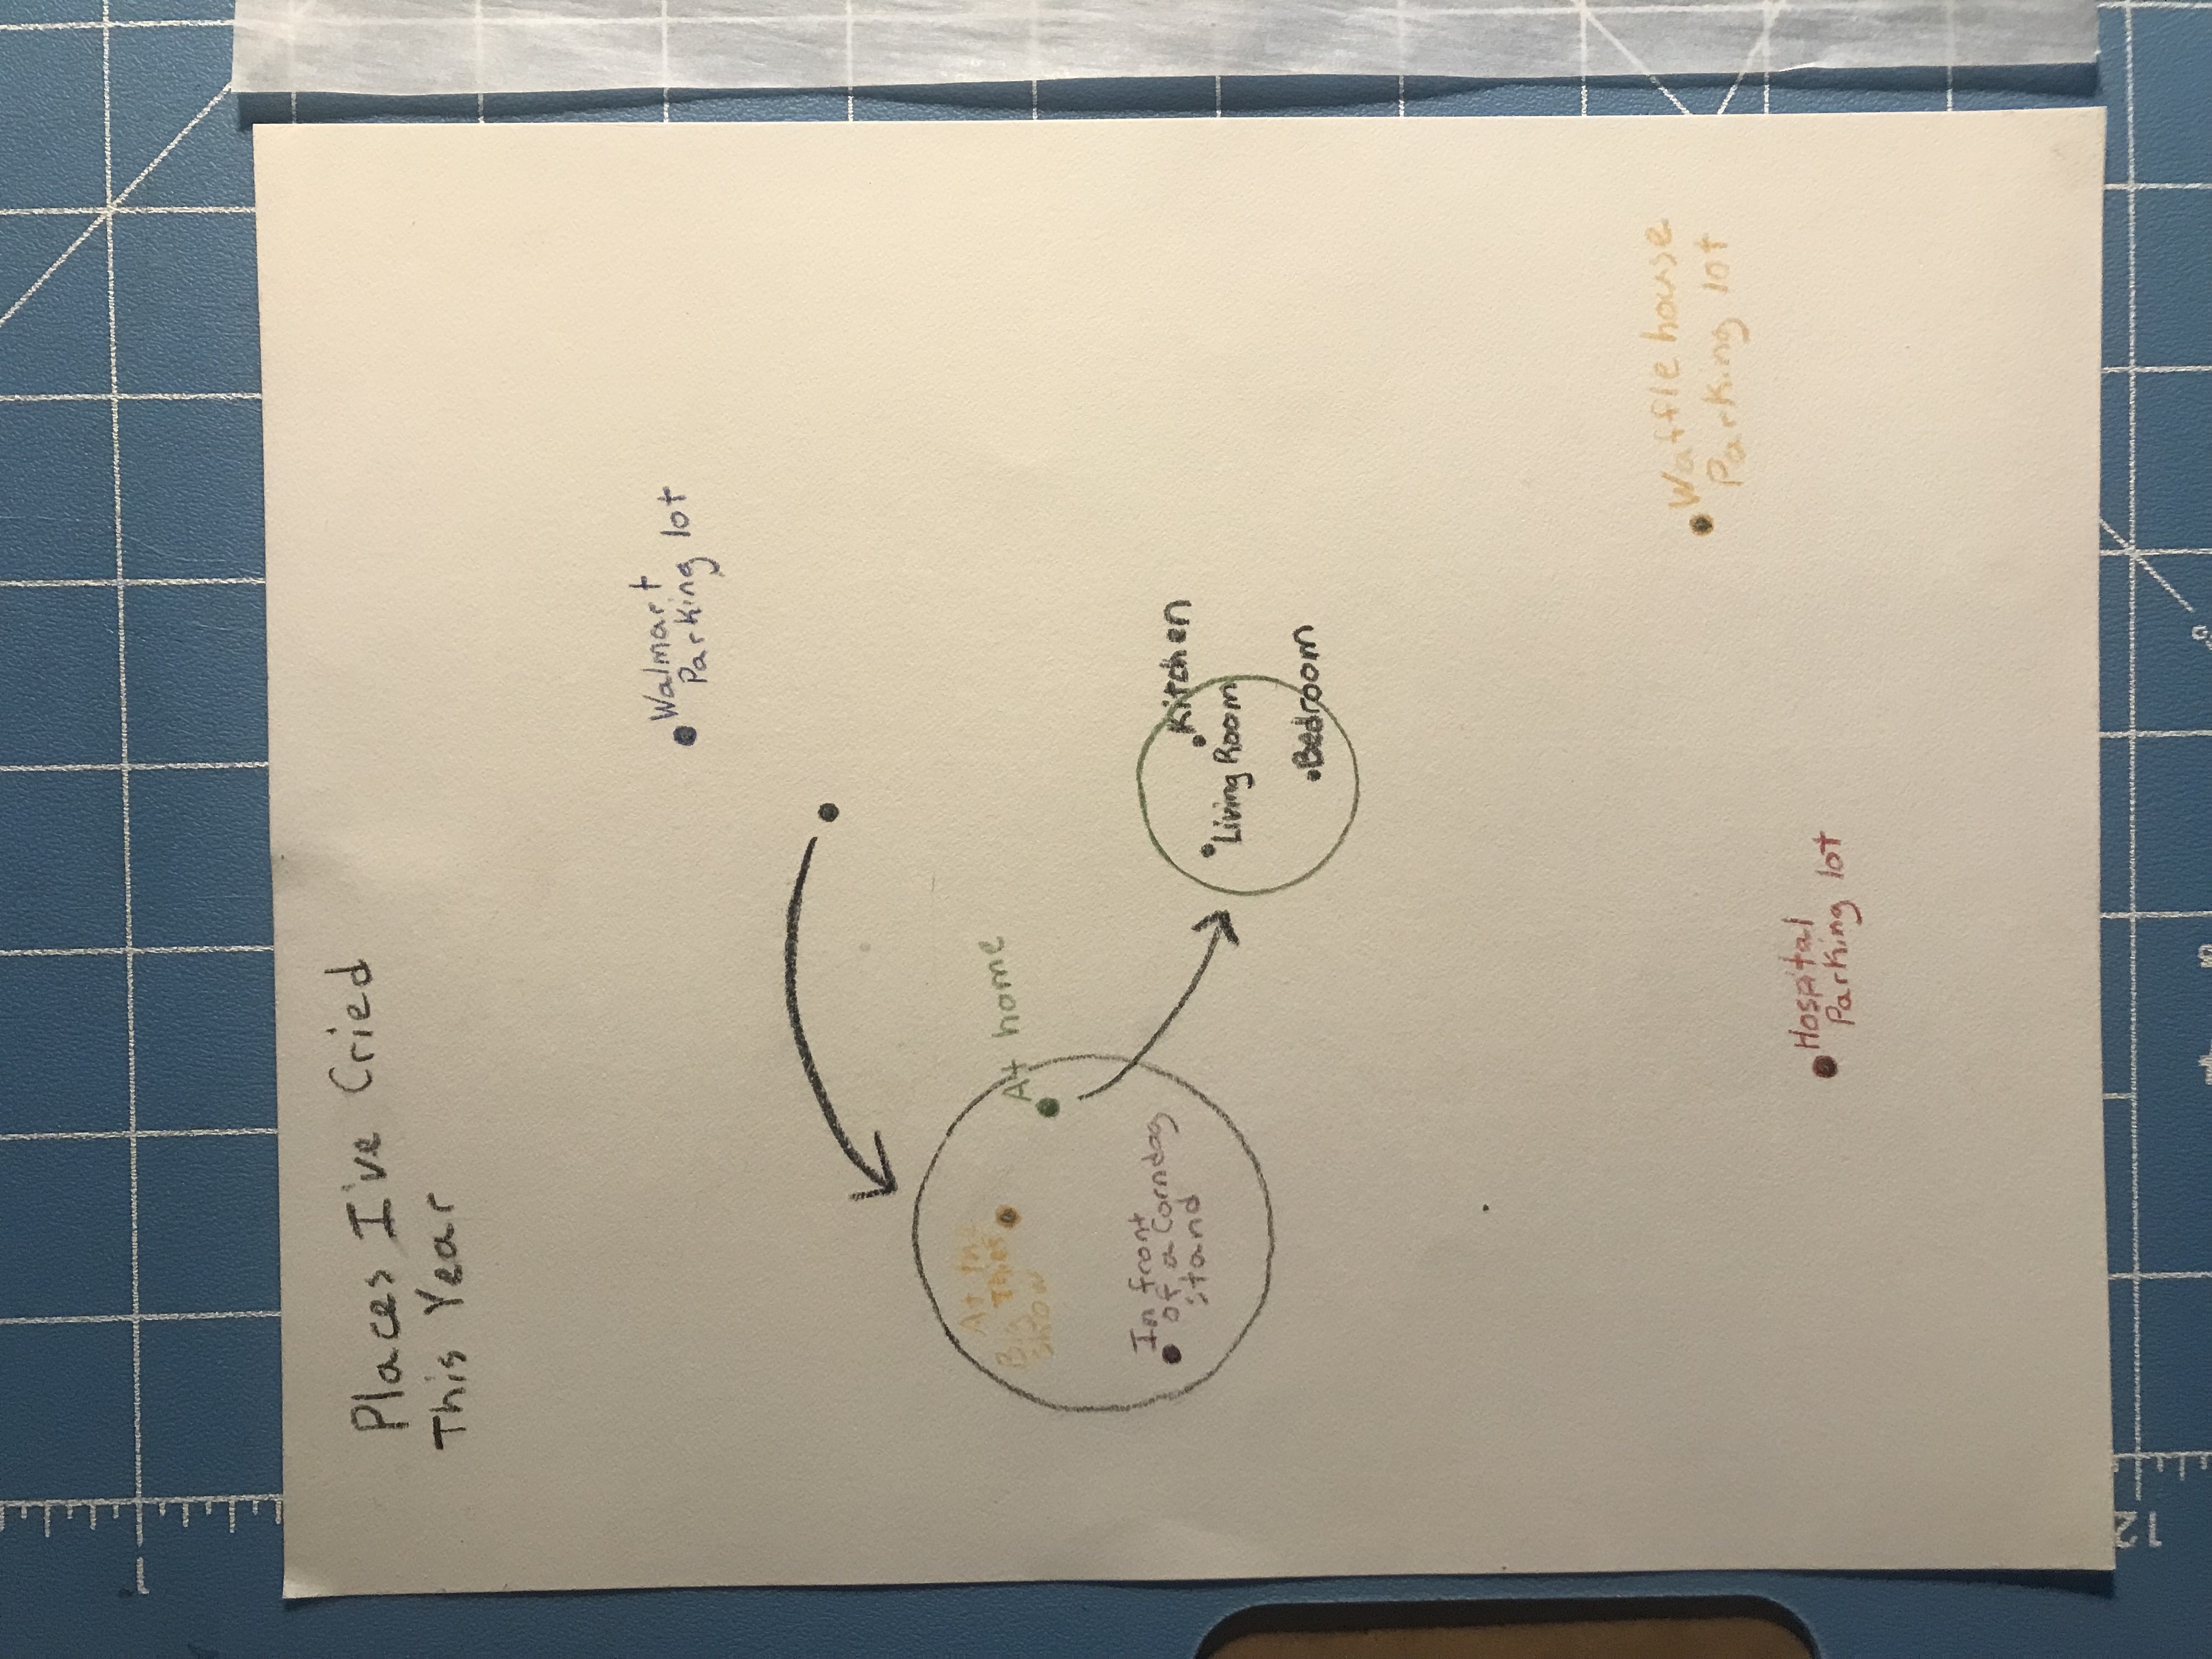 Places I've Cried
This Year
Walmart
Parking lot
At the
Big Thief
Show
At home
In front
of a Corndog
stand
Kitchen
Living Room
Bedroom
Waffle house
Parking lot
Hospital
Parking lot
1
12